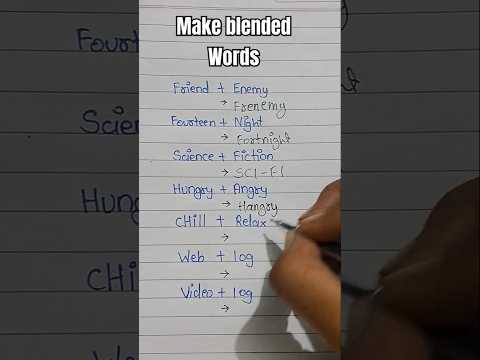 Make blended
Words
Friend + Enemy
→ Frenemy
Fourteen + Night
→ Fortnight
Science + Fiction
→ SCI-FI
Hungry + Angry
→ Hangry
CHill + Relax
→
Web + log
→
Video + log
→